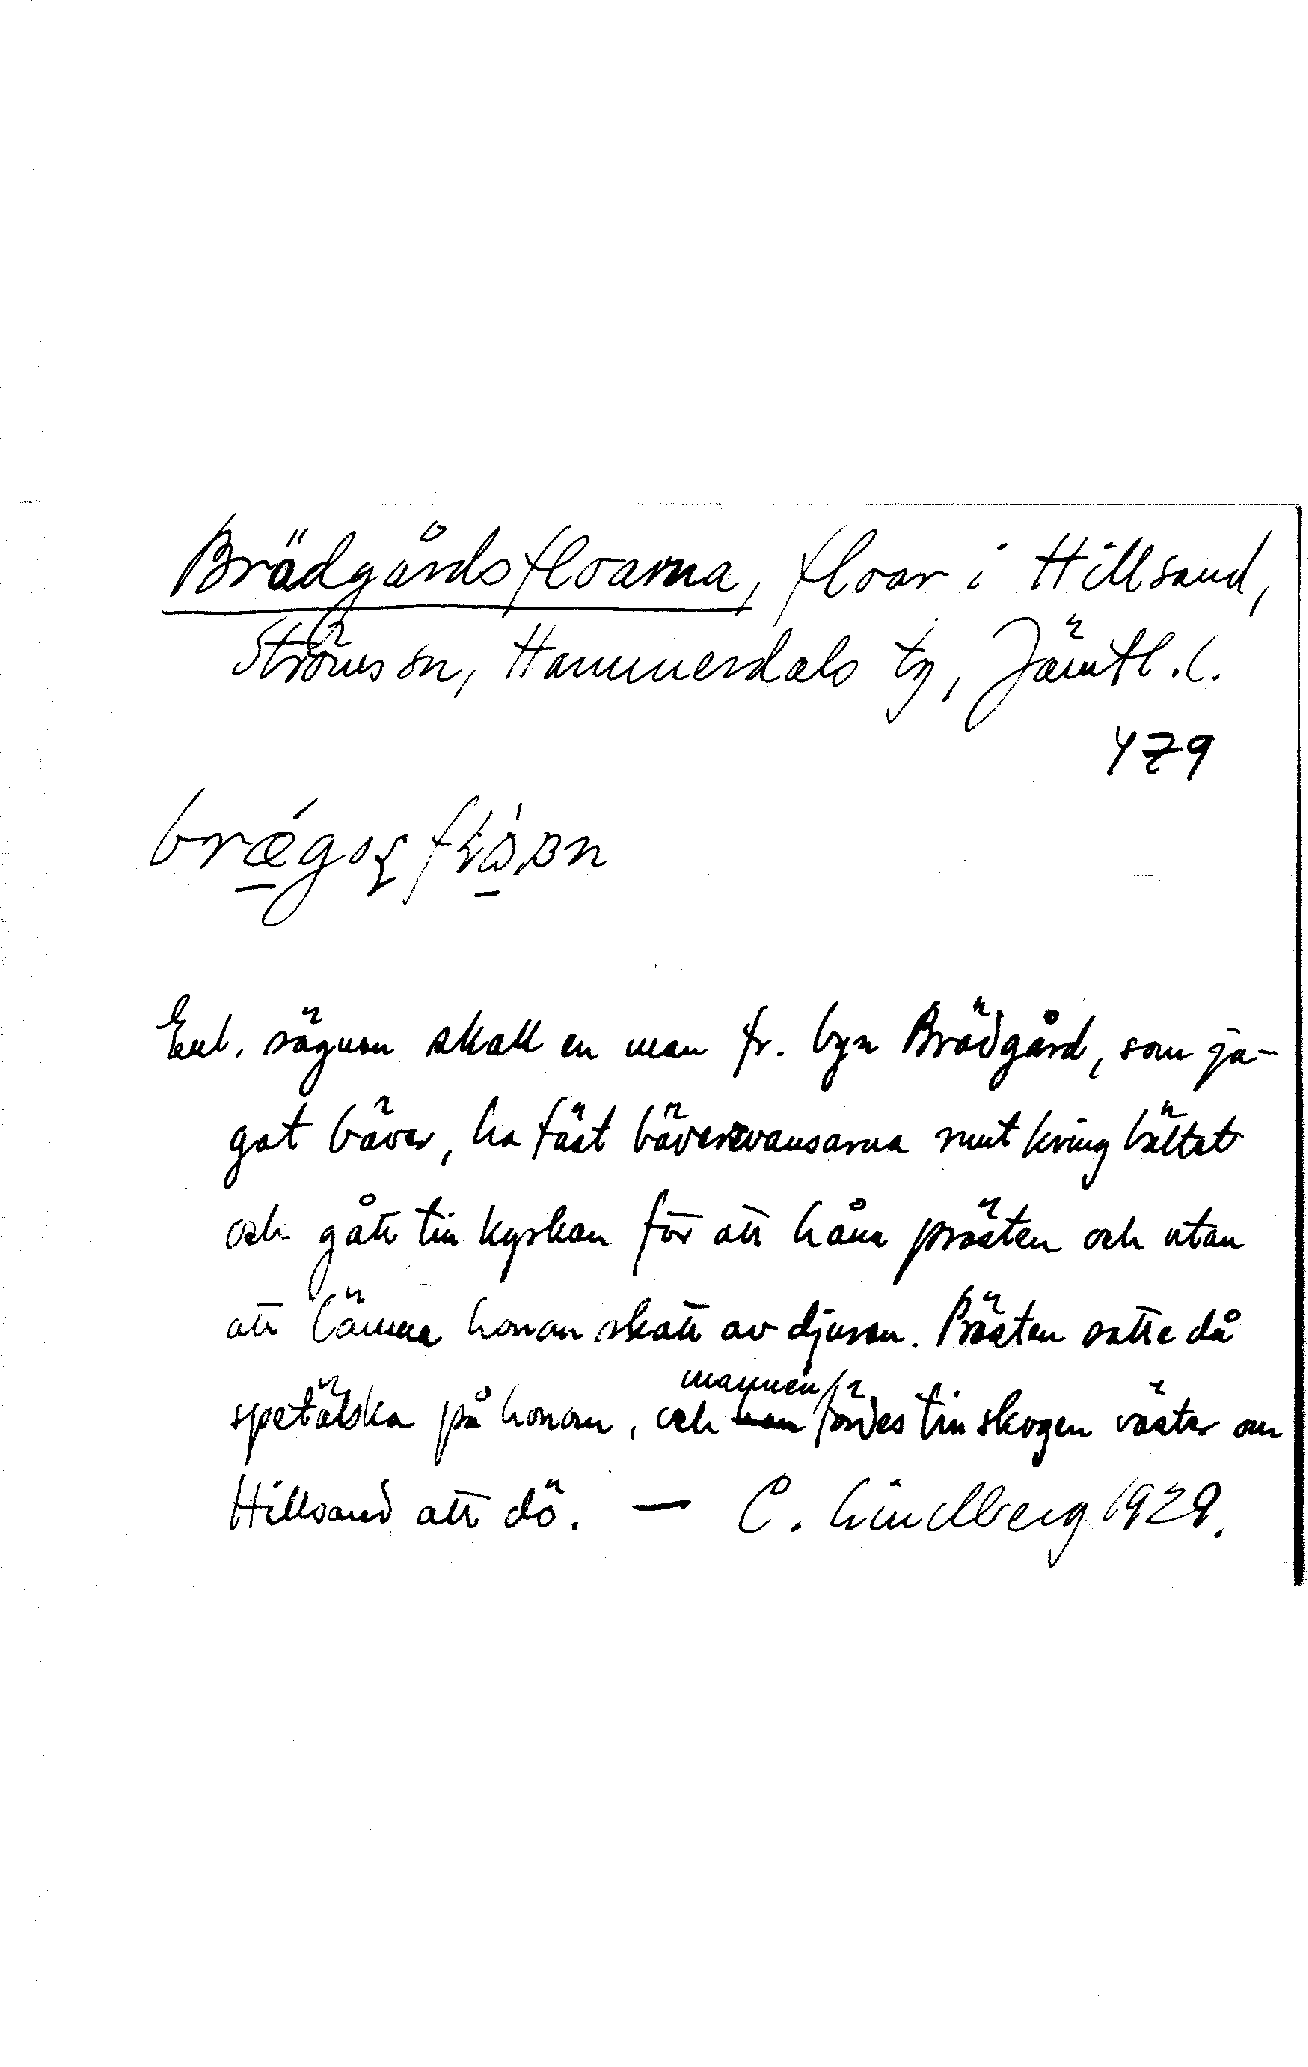 Brädgårdsfloarna, floar i Hillsand,
Ströms sn, Hammerdals tg, Jämtl. l.
479
Enl. sägnen skall en man fr. byn Brädgård, som ja-
gat bäver, ha fäst bäversvansarna runt kring bältet
och gått till kyrkan för att håna prästen och utan
att lämna honom skatt av djuren. Prästen satte då
mannen
spetälska på honom, och han fördes till skogen väster om
Hillsand att dö. — C. Lindberg 1929.